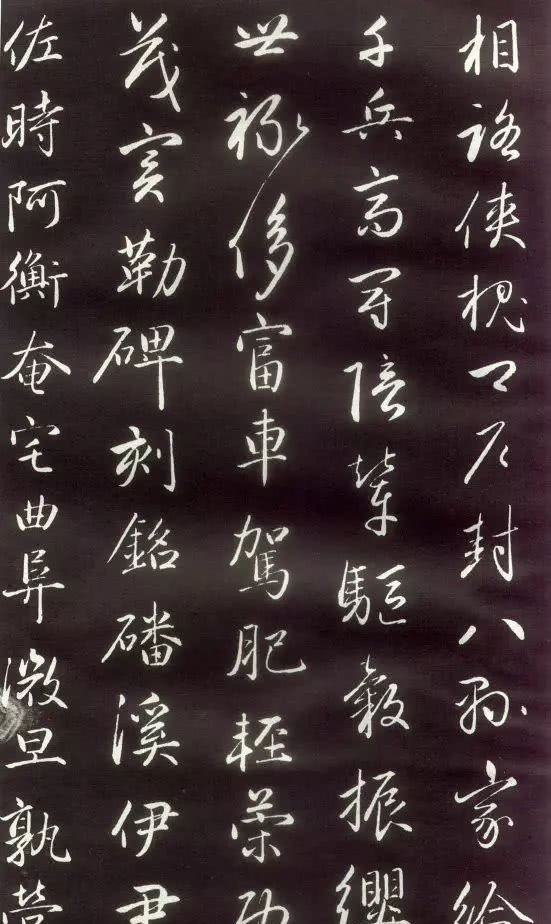 相路俠槐卿戶封八縣家給
千兵高冠陪輦驅轂振纓
世祿侈富車駕肥輕策功
茂實勒碑刻銘磻溪伊尹
佐時阿衡奄宅曲阜微旦孰營